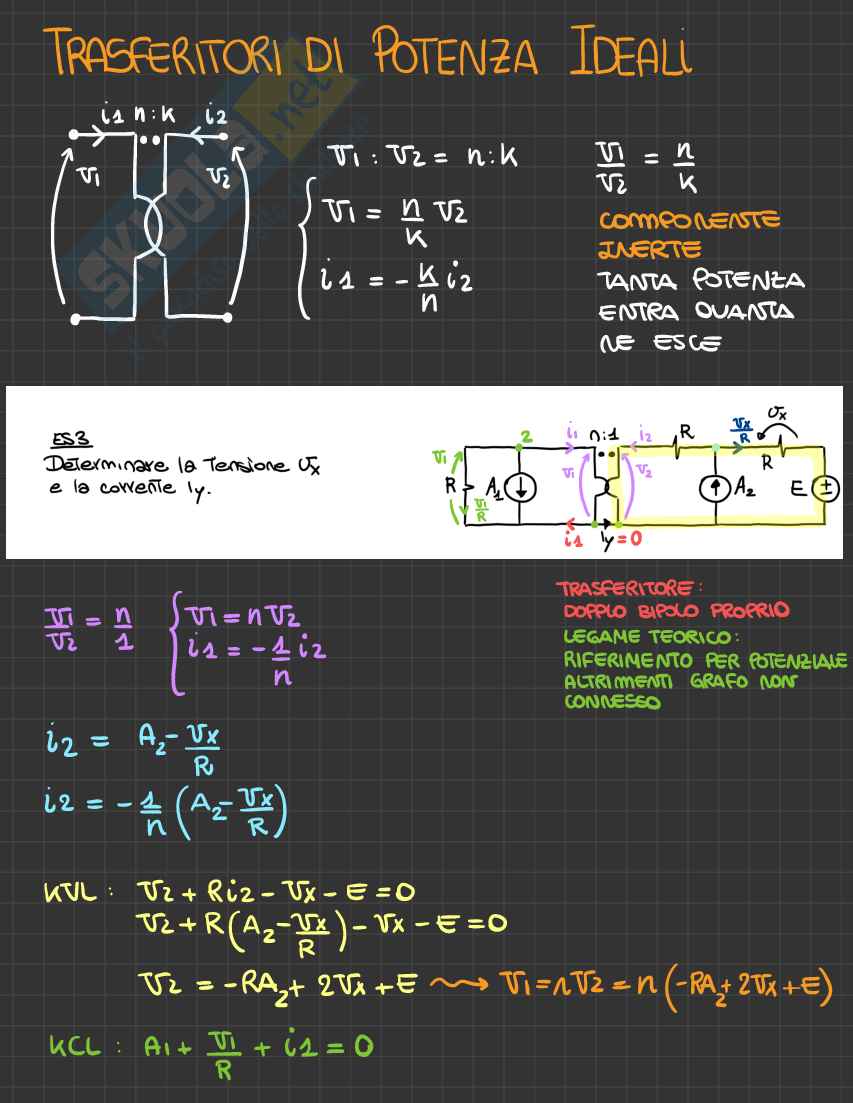 TRASFERITORI DI POTENZA IDEALI
i1 n:k i2
v1 v2
v1 : v2 = n:k
v1/v2 = n/k
v1 = n/k v2
i1 = - k/n i2
COMPONENTE
INERTE
TANTA POTENZA
ENTRA QUANTA
NE ESCE
SKUOLA.net
ES3
Determinare la tensione vx
e la corrente Iy.
v1 2 i1 n:1 i2 R vx/R vx
R A1 v1 v2 R
v1/R A2 E
i1 Iy=0
v1/v2 = n/1
v1 = n v2
i1 = - 1/n i2
TRASFERITORE:
DOPPLO BIPOLO PROPRIO
LEGAME TEORICO:
RIFERIMENTO PER POTENZIALE
ALTRIMENTI GRAFO NON
CONNESSO
i2 = A2 - vx/R
i2 = - 1/n (A2 - vx/R)
KVL: v2 + Ri2 - vx - E = 0
v2 + R(A2 - vx/R) - vx - E = 0
v2 = -RA2 + 2vx + E ⇝ v1 = nv2 = n(-RA2 + 2vx + E)
KCL: A1 + v1/R + i1 = 0